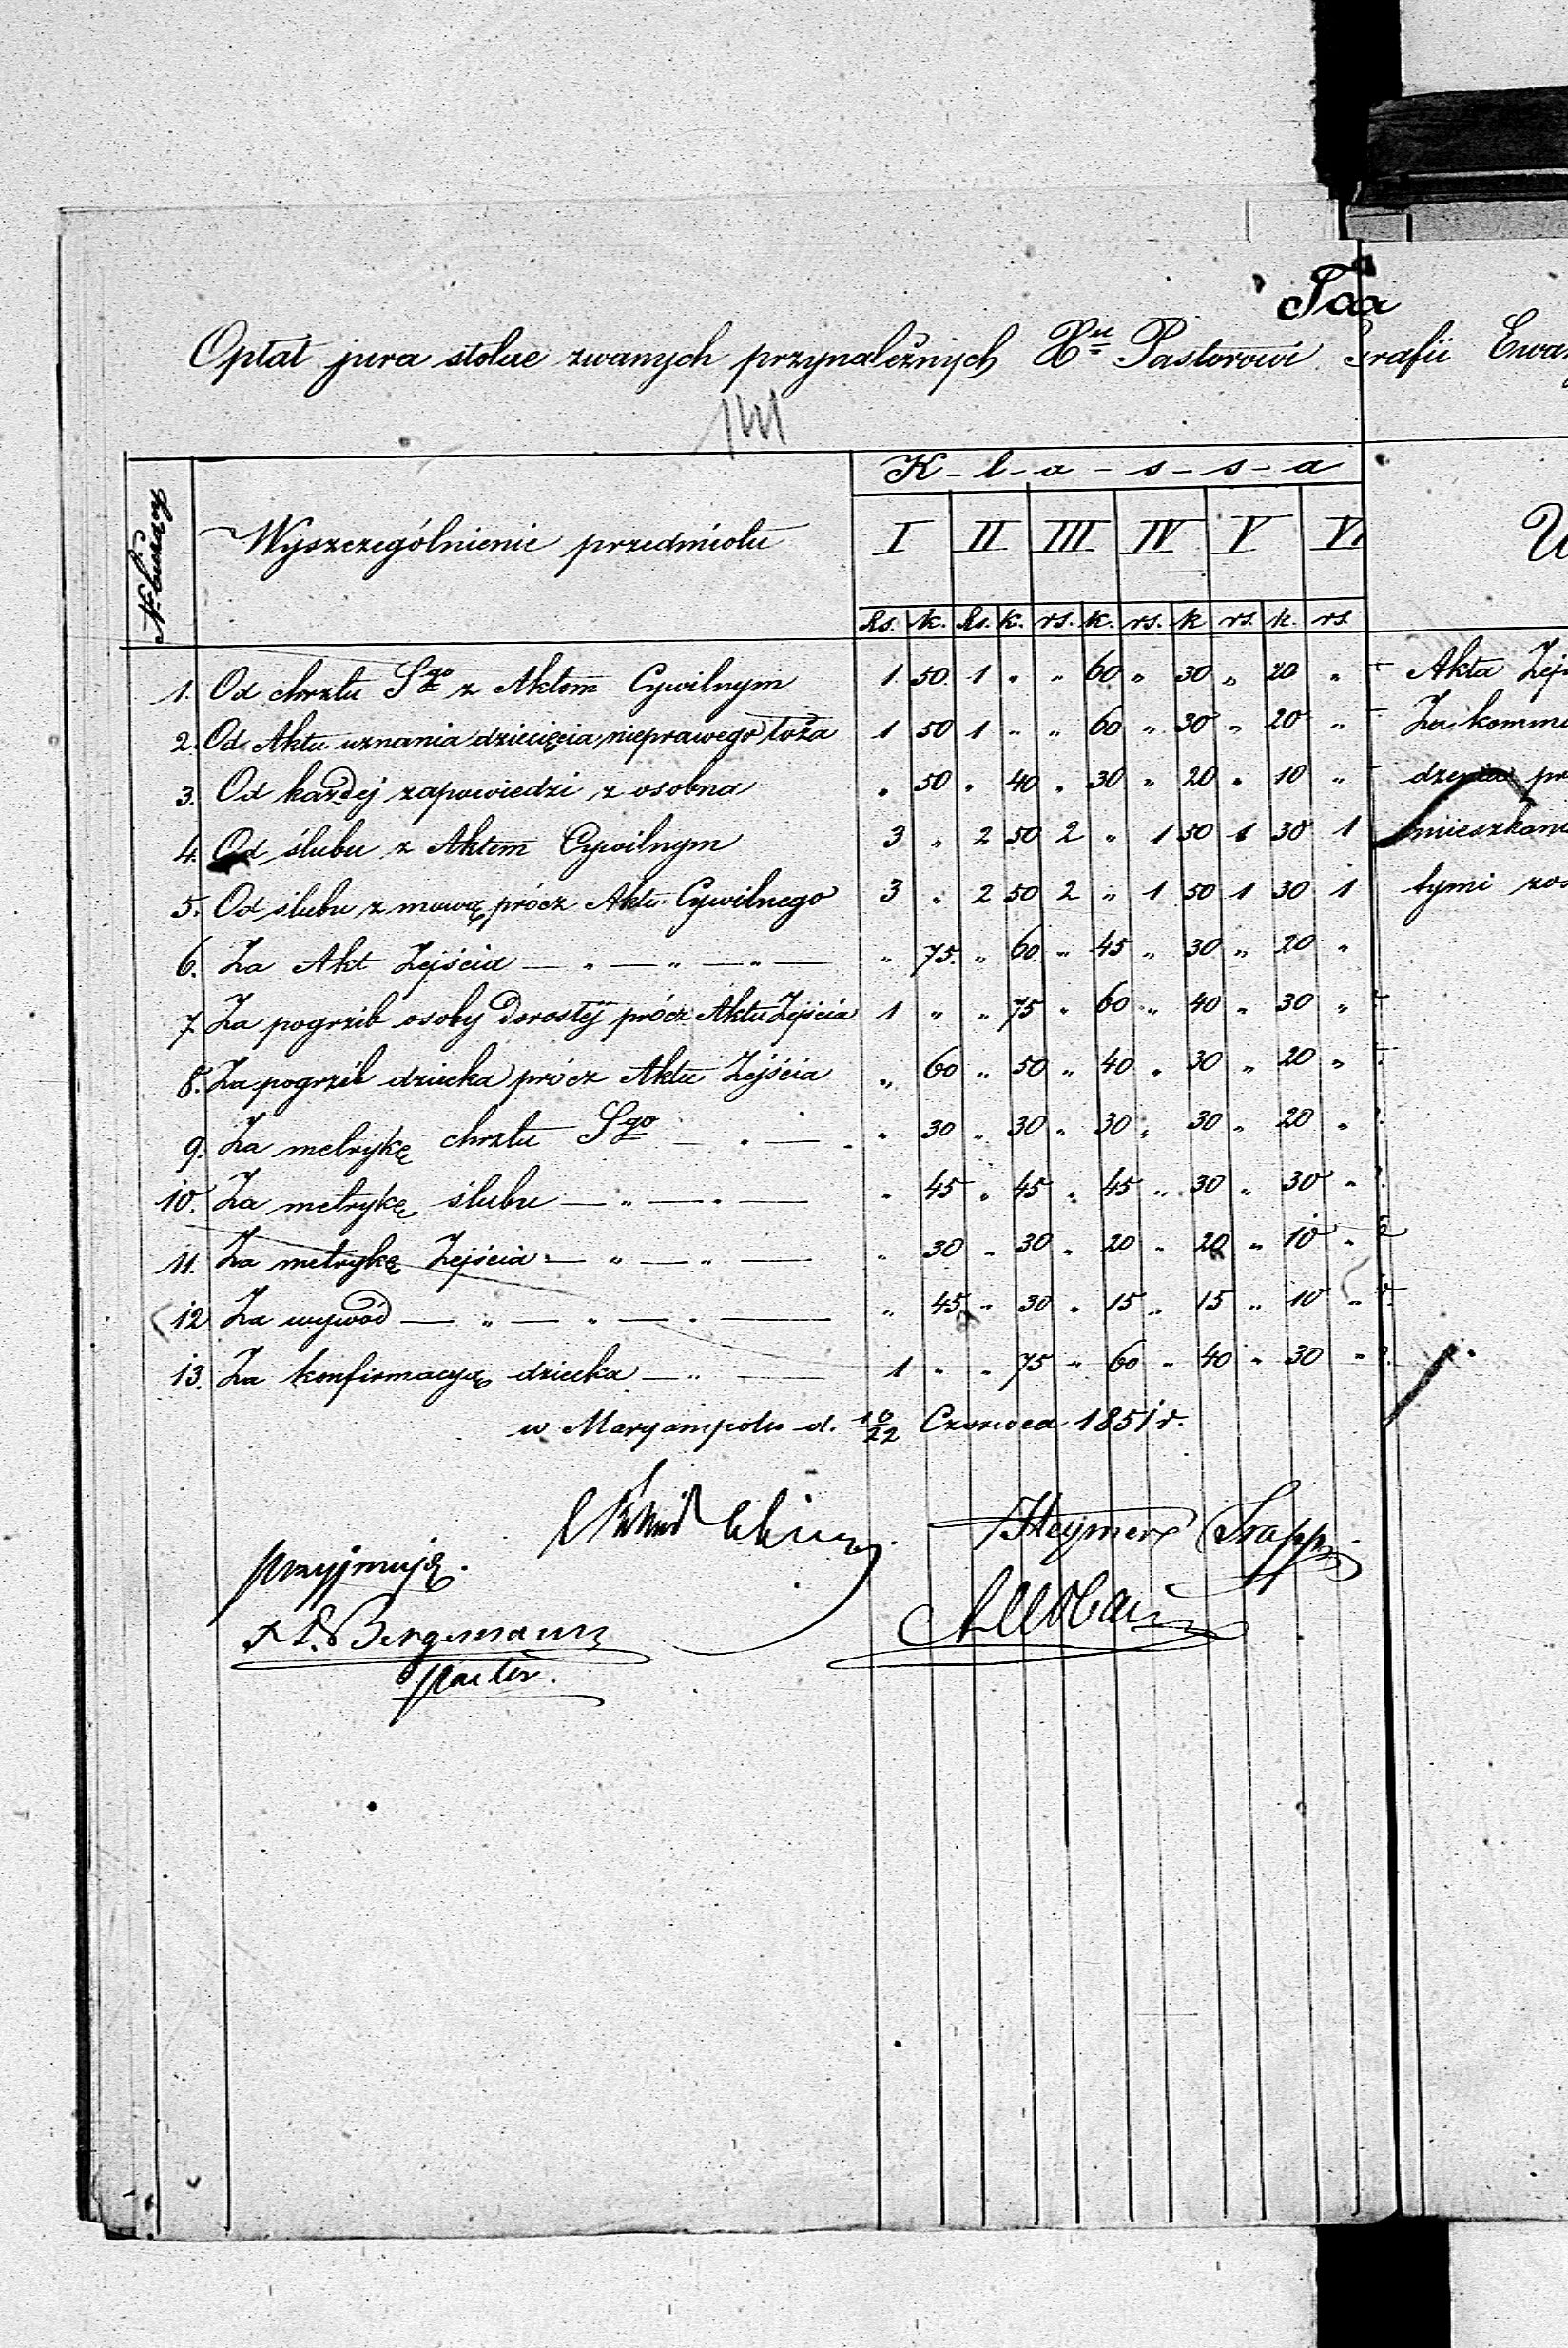 Taa
Opłat jura stolae zwanych przynależnych Xu Pastorowi Parafii Ewan
141
N. bieżący
Wyszczególnienie przedmiotu
K-l-a-s-s-a
I II III IV V VI
Rs. k. Rs. k. rs. k. rs. k rs. k. rs.
1. Od chrztu Sgo z Aktem Cywilnym 1 50. 1 „ „ 60 „ 30 „ 20 „ Akta Zejś
2. Od Aktu uznania dziecięcia nieprawego łoża 1 50 1 „ „ 60 „ 30 „ 20 „ Za kommu
3. Od każdej zapowiedzi z osobna „ 50 „ 40 „ 30 „ 20 „ 10 „ dzenia pr
4. Od ślubu z Aktem Cywilnym 3 „ 2 50 2 „ 1 50 1 30 1 mieszkani
5. Od ślubu z mową prócz Aktu Cywilnego 3 „ 2 50 2 „ 1 50 1 30 1 tymi zos
6. Za Akt Zejścia — „ — „ — „ — „ 75. „ 60. „ 45 „ 30 „ 20 „
7. Za pogrzeb osoby dorosłéj prócz Aktu Zejścia 1 „ „ 75 „ 60 „ 40 „ 30 „
8. Za pogrzeb dziecka prócz Aktu Zejścia „ 60 „ 50 „ 40 „ 30 „ 20 „
9. Za metrykę chrztu Sgo — „ — „ 30 „ 30 „ 30 „ 30 „ 20 „
10. Za metrykę ślubu — „ — „ — „ 45 „ 45 „ 45 „ 30 „ 30 „
11. Za metrykę Zejścia — „ — „ — „ 30 „ 30 „ 20 „ 20 „ 10 „
12 Za wywód — „ — „ — „ — „ 45 „ 30 „ 15 „ 15 „ 10 „
13. Za konfirmacyą dziecka — „ — 1 „ „ 75 „ 60 „ 40 „ 30 „
w Maryampolu d. 10/22 Czerwca 1851 r.
Heymer Trapp
przyjmuję.
Bergemann
pastor.